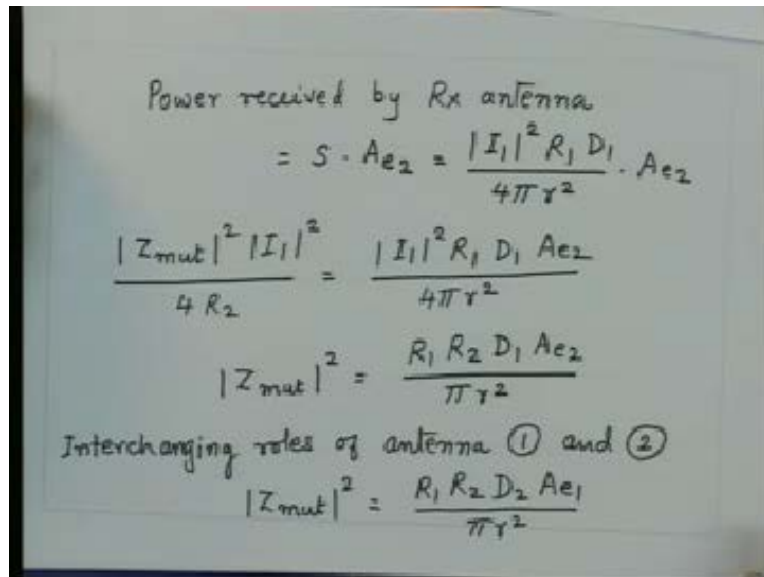 Power received by Rx antenna
= S · Ae₂ = |I₁|² R₁ D₁ / 4πr² · Ae₂
|Zmut|² |I₁|² / 4 R₂ = |I₁|² R₁ D₁ Ae₂ / 4πr²
|Zmut|² = R₁ R₂ D₁ Ae₂ / πr²
Interchanging roles of antenna ① and ②
|Zmut|² = R₁ R₂ D₂ Ae₁ / πr²